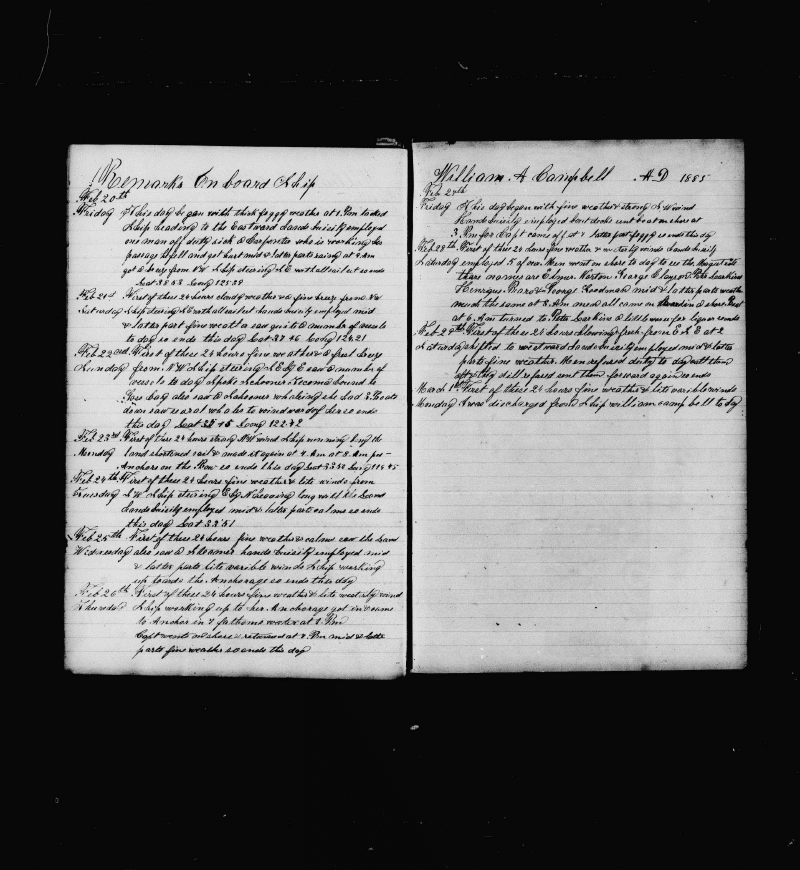 Remarks On board Ship
Feb 20th
Friday This day began with thick foggy weather at 1 Pm tacked
Ship heading to the Eastward hands buisily employed
one man off duty sick & Carpenter who is working his
passage and got hurt mid & later parts at 4 Am
got a breez from NW Ship steering with all sail set so ends
Lat 38 53 Long 125 38
Feb 21st First of these 24 hours cloudy weather & a fine breez from NW
Saturday Ship steering with all sail set hands buisily employed mid
& latter part fine weather saw quite a number of vessels
to day so ends this day Lat 37 46 Long 124 21
Feb 22ond First of these 24 hours fine weather & a fresh breez
Sunday from NW Ship steering E by E saw a number of
vessels to day Spoke Schooner bound to
bay also saw a Schooner whaleing she had 3 Boats
down saw several whales to windward of her so ends
this day Lat 35 45 Long 122 42
Feb 23rd First of these 24 hours strong NW wind Ship running along the
Monday land shortened sail & made it again at 4 Am at 8 Am got
Anchors on the Bow so ends this day Lat 33 52 Long 119 45
Feb 24th First of these 24 hours fine weather & lite winds from
Tuesday SW Ship steering E by N
hands buisily employed mid & latter parts calm so ends
this day Lat 33 51
Feb 25th First of these 24 hours fine weather & calm saw the land
Wednesday also saw a Steamer hands buisily employed mid
& latter parts lite varible winds Ship working
up towards the Anchorage so ends this day
Feb 26th First of these 24 hours fine weather & lite westerly wind
Thursday Ship working up to her Anchorage got in & came
to Anchor in 7 fathoms water at 2 Pm
Capt went on shore & returned at 7 Pm mid & latter
parts fine weather so ends this day
William A Campbell A-D 1885
Feb 27th
Friday This day began with fine weather & strong NW wind
Hands buisily employed boat on shore at
3 Pm for Capt came off at 4 latter part foggy so ends this day
Feb 28th First of these 24 hours fine weather & westerly winds hands buisily
Saturday employed 5 of our Men went on shore to day to see the Magistrate
there names are Elmer Norton George Pete Larkins
George Goodman mid & latter parts weather
much the same at 8 Am men all came on shore
at 6 Am turned to Pete Larkins & Bill for liquor so ends
Feb 29th First of these 24 hours blowing fresh from E S E at 2
Saturday shifted to westward hands buisily employed mid & latter
parts fine weather. Men refused duty to day
they still refused sent them forward again so ends
March 1st First of these 24 hours fine weather & lite varible winds
Monday I was discharged from Ship william campbell to day